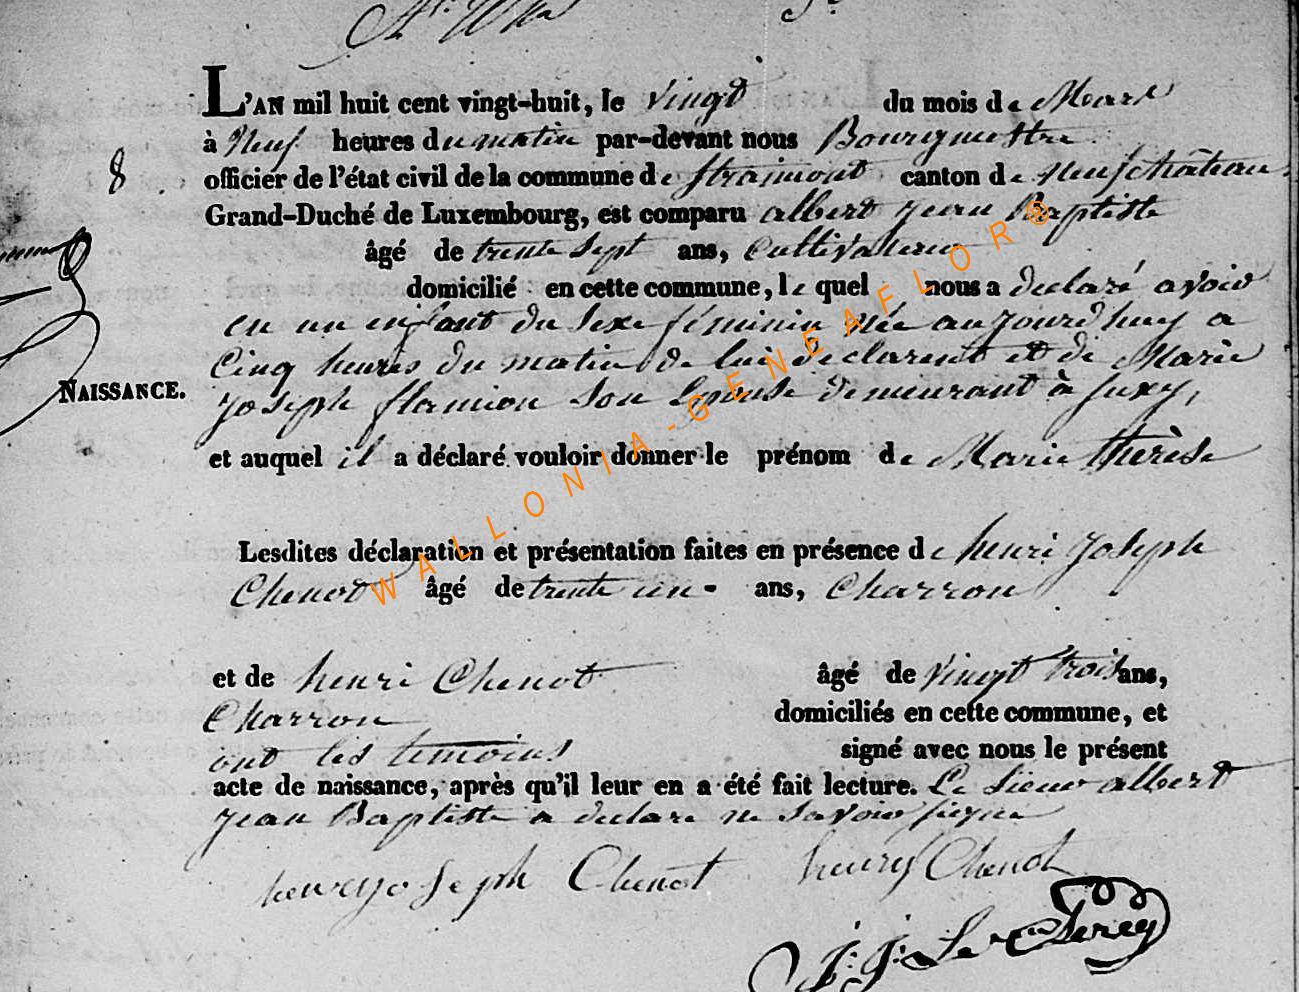 L'AN mil huit cent vingt-huit, le vingt du mois de Mars
à Neuf heures du matin par-devant nous Bourgmestre
8
officier de l'état civil de la commune de straimont canton de neufchâteau
Grand-Duché de Luxembourg, est comparu albert jean Baptiste
âgé de trente sept ans, cultivateur
domicilié en cette commune, le quel nous a declaré avoir
eu un enfant du sexe féminin née aujourdhuy a
Cinq heures du matin de lui declarent et de Marie
joseph flamion son Epouse demeurant à suxy,
NAISSANCE.
et auquel il a déclaré vouloir donner le prénom de Marie thérèse
Lesdites déclaration et présentation faites en présence de henri joseph
Chenot âgé de trente un ans, Charron
et de henri Chenot âgé de vingt trois ans,
Charron domiciliés en cette commune, et
ont les temoins signé avec nous le présent
acte de naissance, après qu'il leur en a été fait lecture. Le sieur albert
jean Baptiste a declare ne savoir signer
henry joseph Chenot henry Chenot
WALLONIA-GENEAFLOR®